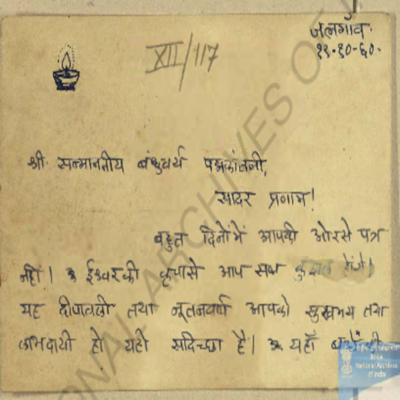 जलगाँव.
१९-१०-६०.
XII/117
श्री. सन्माननीय बंधुवर्य पद्मकांतजी,
सादर प्रणाम!
बहुत दिनोंमें आपकी ओरसे पत्र
नहीं। ईश्वरकी कृपासे आप सब कुशल होंगे।
यह दीपावली तथा नूतनवर्ष आपको सुखमय तथा
लाभदायी हो यही सदिच्छा है। यहाँ
NATIONAL ARCHIVES OF
National Archives
of India